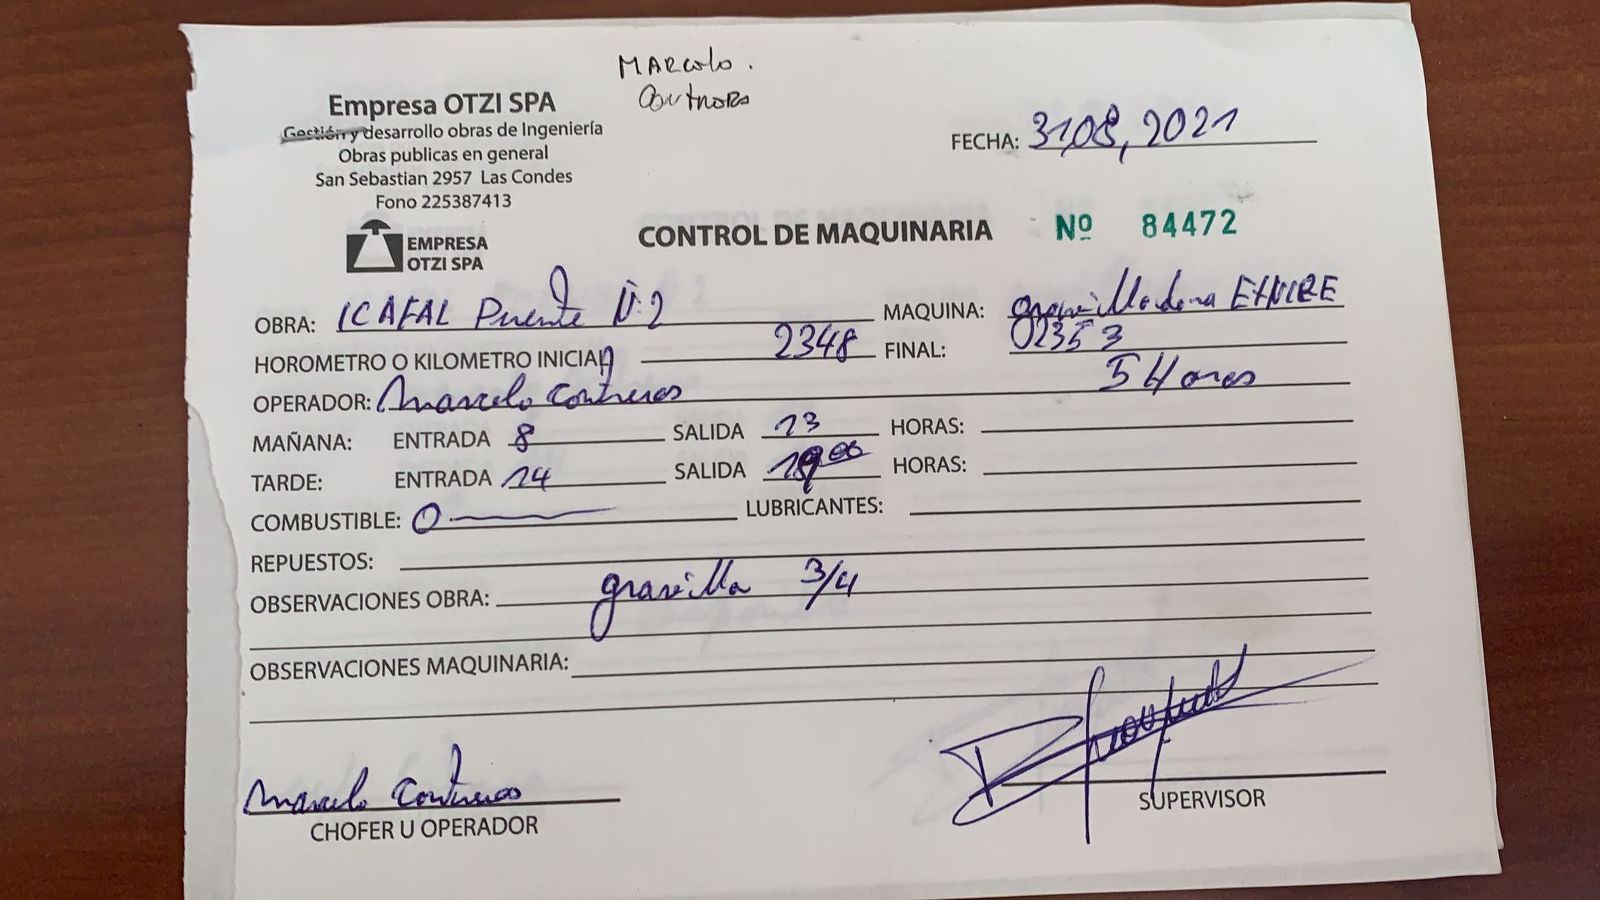 MARCELO.
CONTRERAS
Empresa OTZI SPA
Gestión y desarrollo obras de Ingeniería
Obras publicas en general
San Sebastian 2957 Las Condes
Fono 225387413
EMPRESA
OTZI SPA
FECHA: 31,08, 2021
CONTROL DE MAQUINARIA Nº 84472
OBRA: ICAFAL Puente N.2 MAQUINA: gravilladora ETNIRE
HOROMETRO O KILOMETRO INICIAL 2348 FINAL: 02353
OPERADOR: Marcelo Contreras 5 Horas
MAÑANA: ENTRADA 8 SALIDA 13 HORAS:
TARDE: ENTRADA 14 SALIDA HORAS:
COMBUSTIBLE: 0 LUBRICANTES:
REPUESTOS:
OBSERVACIONES OBRA: gravilla 3/4
OBSERVACIONES MAQUINARIA:
Marcelo Contreras
CHOFER U OPERADOR
SUPERVISOR